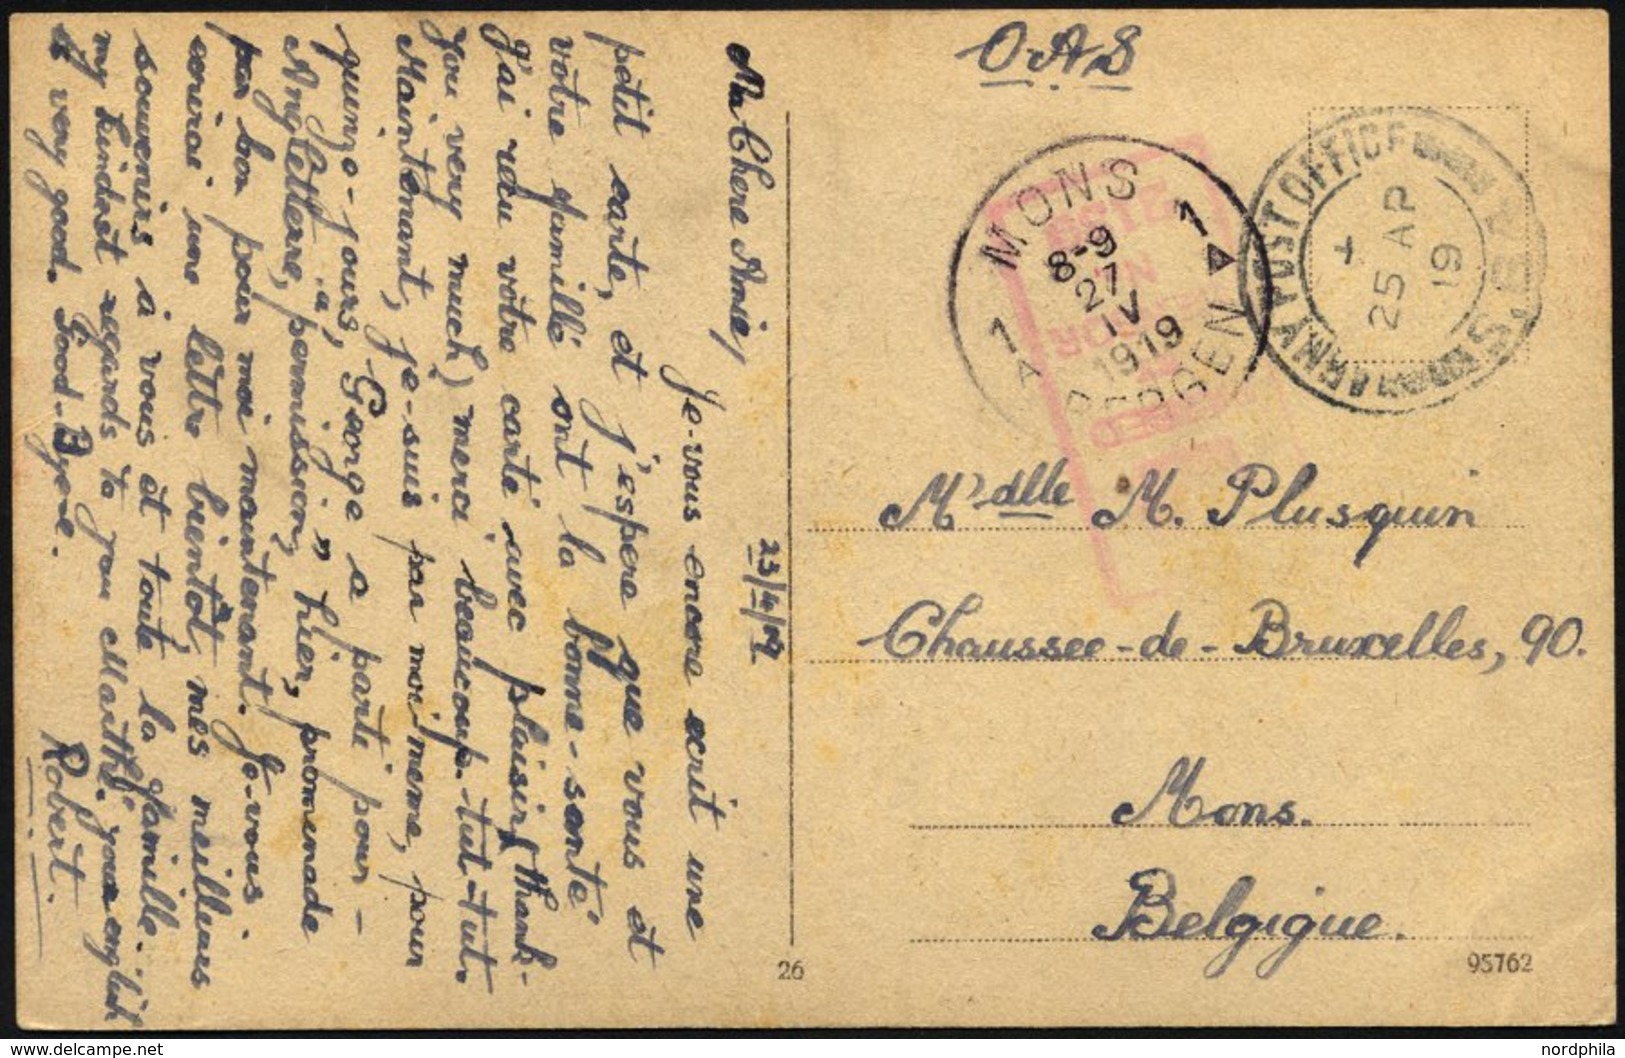 O.A.S
Ma Chere Amie,
23/4/19
Je-vous encore ecrit une
petit carte, et j'espere que vous et
votre famille sont la bonne-sante
J'ai reçu votre carte avec plaisir (thank-
you very much) merci beaucoup. tut-tut.
Maintenant, je-suis par moi meme, pour
quinze-jours, George a parti pour-
Angleterre, "a permission" hier, promenade
pas bon pour moi maintenant. Je-vous
ecrirai une lettre bientôt, mes meilleurs
souvenirs à vous et toute la famille.
my kindest regards to you Marthe. your english
is very good. Good-Bye.
Robert.
MONS
1 1
A
8-9
27
IV
1919
BERGEN
ARMY POST OFFICE
25 AP
19
M'dlle M. Plusquin
Chaussee-de-Bruxelles, 90.
Mons.
Belgique.
26
95762
delcampe.net
nordphila